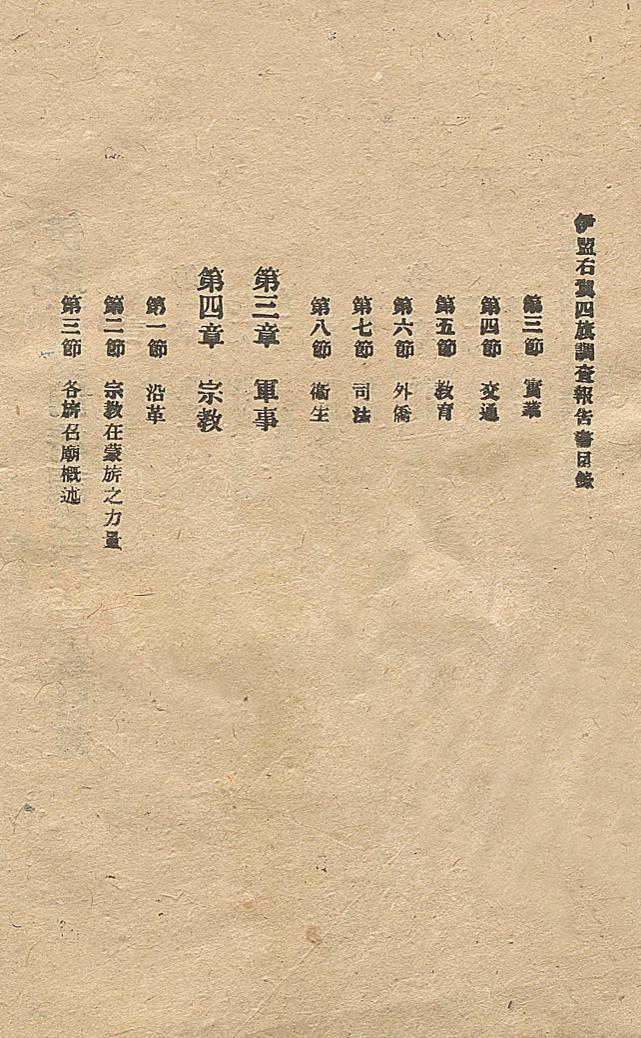 伊盟右翼四旗調查報告書目錄
第三節 實業
第四節 交通
第五節 教育
第六節 外僑
第七節 司法
第八節 衞生
第三章 軍事
第四章 宗教
第一節 沿革
第二節 宗教在蒙旂之力量
第三節 各旂召廟概述